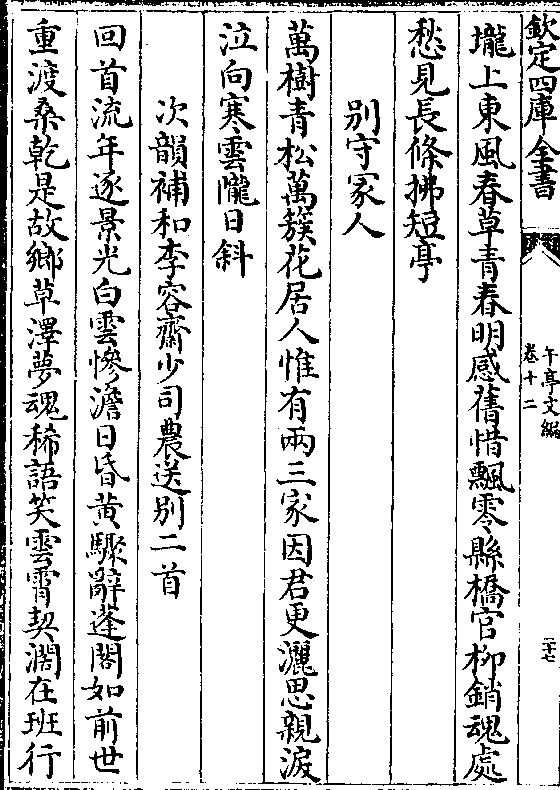 欽定四庫全書
午亭文編
卷十二
二十七
壠上東風春草青春明感舊惜飄零縣橋官柳銷魂處
愁見長條拂短亭
别守冢人
萬樹青松萬簇花居人惟有兩三家因君更灑思親淚
泣向寒雲隴日斜
次韻補和李容齋少司農送别二首
回首流年逐景光白雲慘澹日昏黄驟辭蓬閣如前世
重渡桑乾是故鄉草澤夢魂稀語笑雲霄契濶在班行